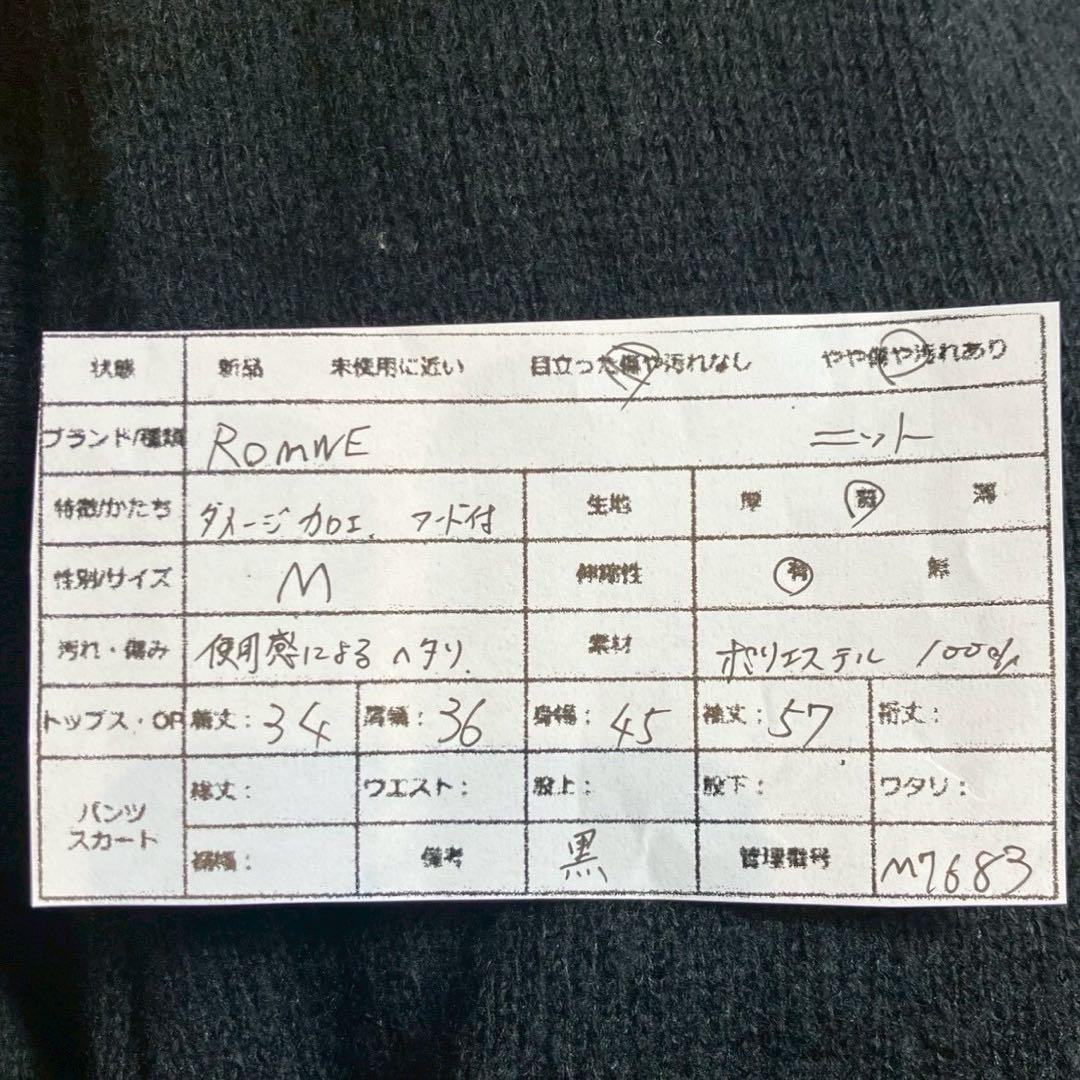 状態 新品 未使用に近い 目立った傷や汚れなし やや傷や汚れあり
ブランド/種類 ROMWE ニット
特徴/かたち ダメージカロエ、フード付 生地 厚 薄
性別/サイズ M 伸縮性 有 無
汚れ・傷み 使用感によるヘタリ 素材 ポリエステル 100%
トップス・OP 着丈：34 肩幅：36 身幅：45 袖丈：57 裄丈：
パンツ スカート 総丈： ウエスト： 股上： 股下： ワタリ：
裾幅： 備考 黒 管理番号 M7683